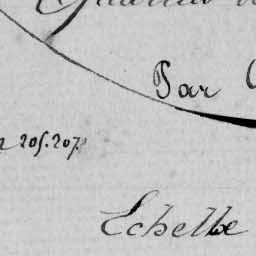 Par
205.207.
Echelle